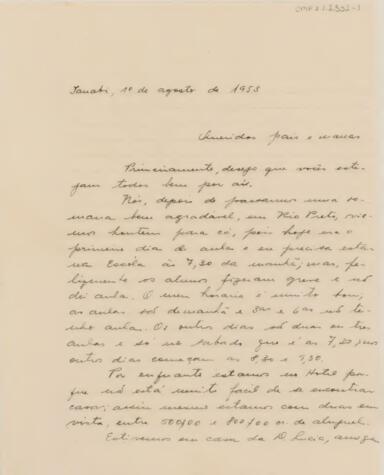 CMP 2.1.2.332-1
Tanabi, 1º de agosto de 1955
Queridos pais e manas
Primeiramente, desejo que vocês este-
jam todos bem por aí.
Nós, depois de passarmos uma se-
mana bem agradavel, em Rio Preto, vie-
mos hontem para cá, pois hoje era o
primeiro dia de aula e eu precisa estar
na Escola às 7,30 da manhã; mas, fe-
lizmente os alunos fizeram greve e não
dei aula. O meu horario é muito bom,
as aulas só de manhã e 5as e 6as não te-
nho aula. Os outros dias só duas ou tres
aulas e só no sabado que é as 7,30; nos
outros dias começam as 8,20 e 9,30.
Por enquanto estamos no Hotel por-
que não está muito facil de se encontrar
casa; assim mesmo estamos com duas em
vista, entre 500,00 e 800,00 cr. de aluguel.
Estivemos em casa da D. Lucia, amiga